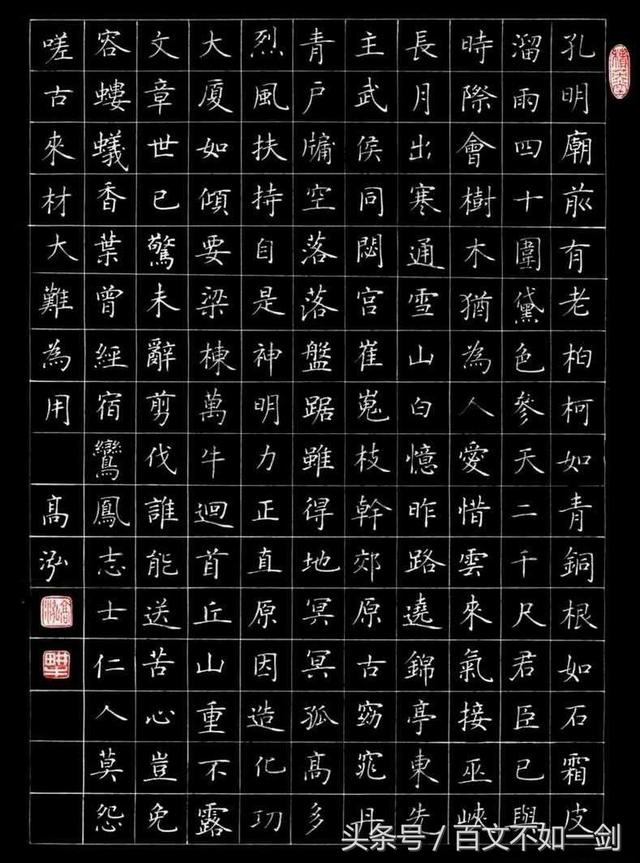 孔明廟前有老柏柯如青銅根如石霜皮
溜雨四十圍黛色參天二千尺君臣已與
時際會樹木猶為人愛惜雲來氣接巫峽
長月出寒通雪山白憶昨路遶錦亭東先
主武侯同閟宮崔嵬枝幹郊原古窈窕丹
青戶牖空落落盤踞雖得地冥冥孤高多
烈風扶持自是神明力正直原因造化功
大廈如傾要梁棟萬牛迴首丘山重不露
文章世已驚未辭剪伐誰能送苦心豈免
容螻蟻香葉曾經宿鸞鳳志士仁人莫怨
嗟古來材大難為用 高泓
头条号 / 百文不如一剑